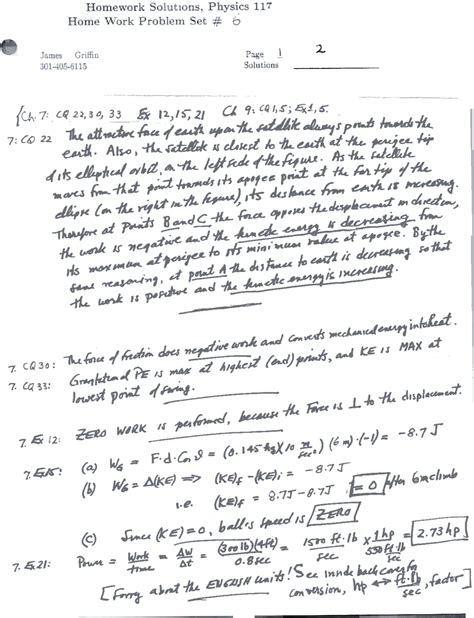 Homework Solutions, Physics 117
Home Work Problem Set # 6
James Griffin
301-405-6115
Page 1 2
Solutions
{Ch. 7: CQ 22, 30, 33 Ex 12, 15, 21 Ch 9: CQ 1, 5; Ex 1, 5.
7: CQ 22 The attractive force of earth upon the satellite always points towards the
earth. Also, the satellite is closest to the earth at the perigee tip
of its elliptical orbit, on the left side of the figure. As the satellite
moves from that point towards its apogee point at the far tip of the
ellipse (on the right in the figure), its distance from earth is increasing.
Therefore at Points B and C the force opposes the displacement in direction,
the work is negative and the kinetic energy is decreasing from
its maximum at perigee to its minimum value at apogee. By the
same reasoning, at point A the distance to earth is decreasing so that
the work is positive and the kinetic energy is increasing.
7. CQ 30: The force of friction does negative work and converts mechanical energy into heat.
7. CQ 33: Gravitational PE is max at highest (end) points, and KE is MAX at
lowest point of swing.
7. Ex 12: ZERO WORK is performed, because the Force is ⊥ to the displacement.
7. E15: (a) W_G = F·d·Cos θ = (0.145 kg)(10 m/sec²)(6 m)·(-1) = -8.7 J
(b) W_G = Δ(KE) ⟹ (KE)f - (KE)i = -8.7 J
i.e. (KE)f = 8.7J - 8.7J = 0 after 6m climb
(c) Since (KE) = 0, ball's speed is ZERO
7. E.21: Power = Work/time = ΔW/Δt = (300 lb)(4 ft)/0.8 sec = 1500 ft·lb/sec × 1 hp/550 ft·lb/sec = 2.73 hp
[Sorry about the ENGLISH units! See inside back cover for
conversion, hp ↔ ft·lb/sec, factor]